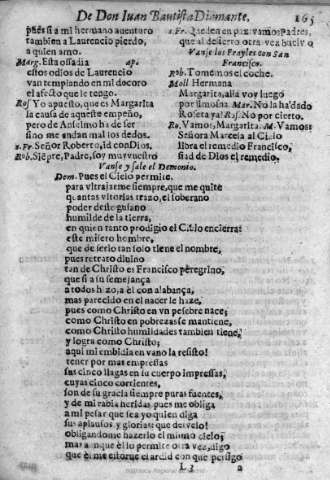 De Don Iuan Bautista Diamante.
165
pues si a mi hermano auenturo
tambien a Laurencio pierdo,
a quien amo.
Marg. Esta ossadia ap.
estos odios de Laurencio
van templando en mi decoro
el afecto que le tengo.
Rof. Yo apuesto, que es Margarita
la causa de aqueste empeño,
pero de Anselmo ha de ser
sino me andan mal los dedos.
S. Fr. Señor Roberto, id con Dios.
Rob. Siẽpre, Padre, soy muy vuestro
S. Fr. Queden en paz, vamos Padres,
que al desierto otra vez bueluo
Vanse los Frayles con San
Francisco.
Rob. Tomemos el coche.
Moll Hermana
Margarita, alla voy luego
por limosna. Mar. No la ha dado
Roseta ya? Ros. No por cierto.
Ro. Vamos, Margarita. M. Vamos:
Señora Marcela al Cielo
libra el remedio Francisco,
sea Dios el remedio.
Vanse y sale el Demonio.
Dem. Pues el Cielo permite,
para vltrajarme siempre, que me quite
quantas vitorias trazo, el soberano
poder deste gusano
humilde de la tierra,
en quien tanto prodigio el Cielo encierra:
este misero hombre,
que de serlo tan solo tiene el nombre,
pues retrato diuino
tan de Christo es Francisco peregrino,
que si a su semejança
a todos hizo, a èl con alabança,
mas parecido en el nacer le haze,
pues como Christo en vn pesebre nace;
como Christo en pobrezas se mantiene,
como Christo humildades tambien tiene,
y logra como Christo;
aqui mi embidia en vano la resisto!
tener por mas empressas
sus cinco llagas en su cuerpo impressas,
cuyas cinco corrientes,
son de su gracia siempre puras fuentes,
y de mi rabia heridas, pues me obliga
a mi pesar que sea yo quien diga
sus aplausos, y glorias: que desvelo!
obligandome hazerlo el mismo cielo;
mas aunque èl lo permite otra vez, digo
que èl me estorue el ardid con que persigo
L 3
a